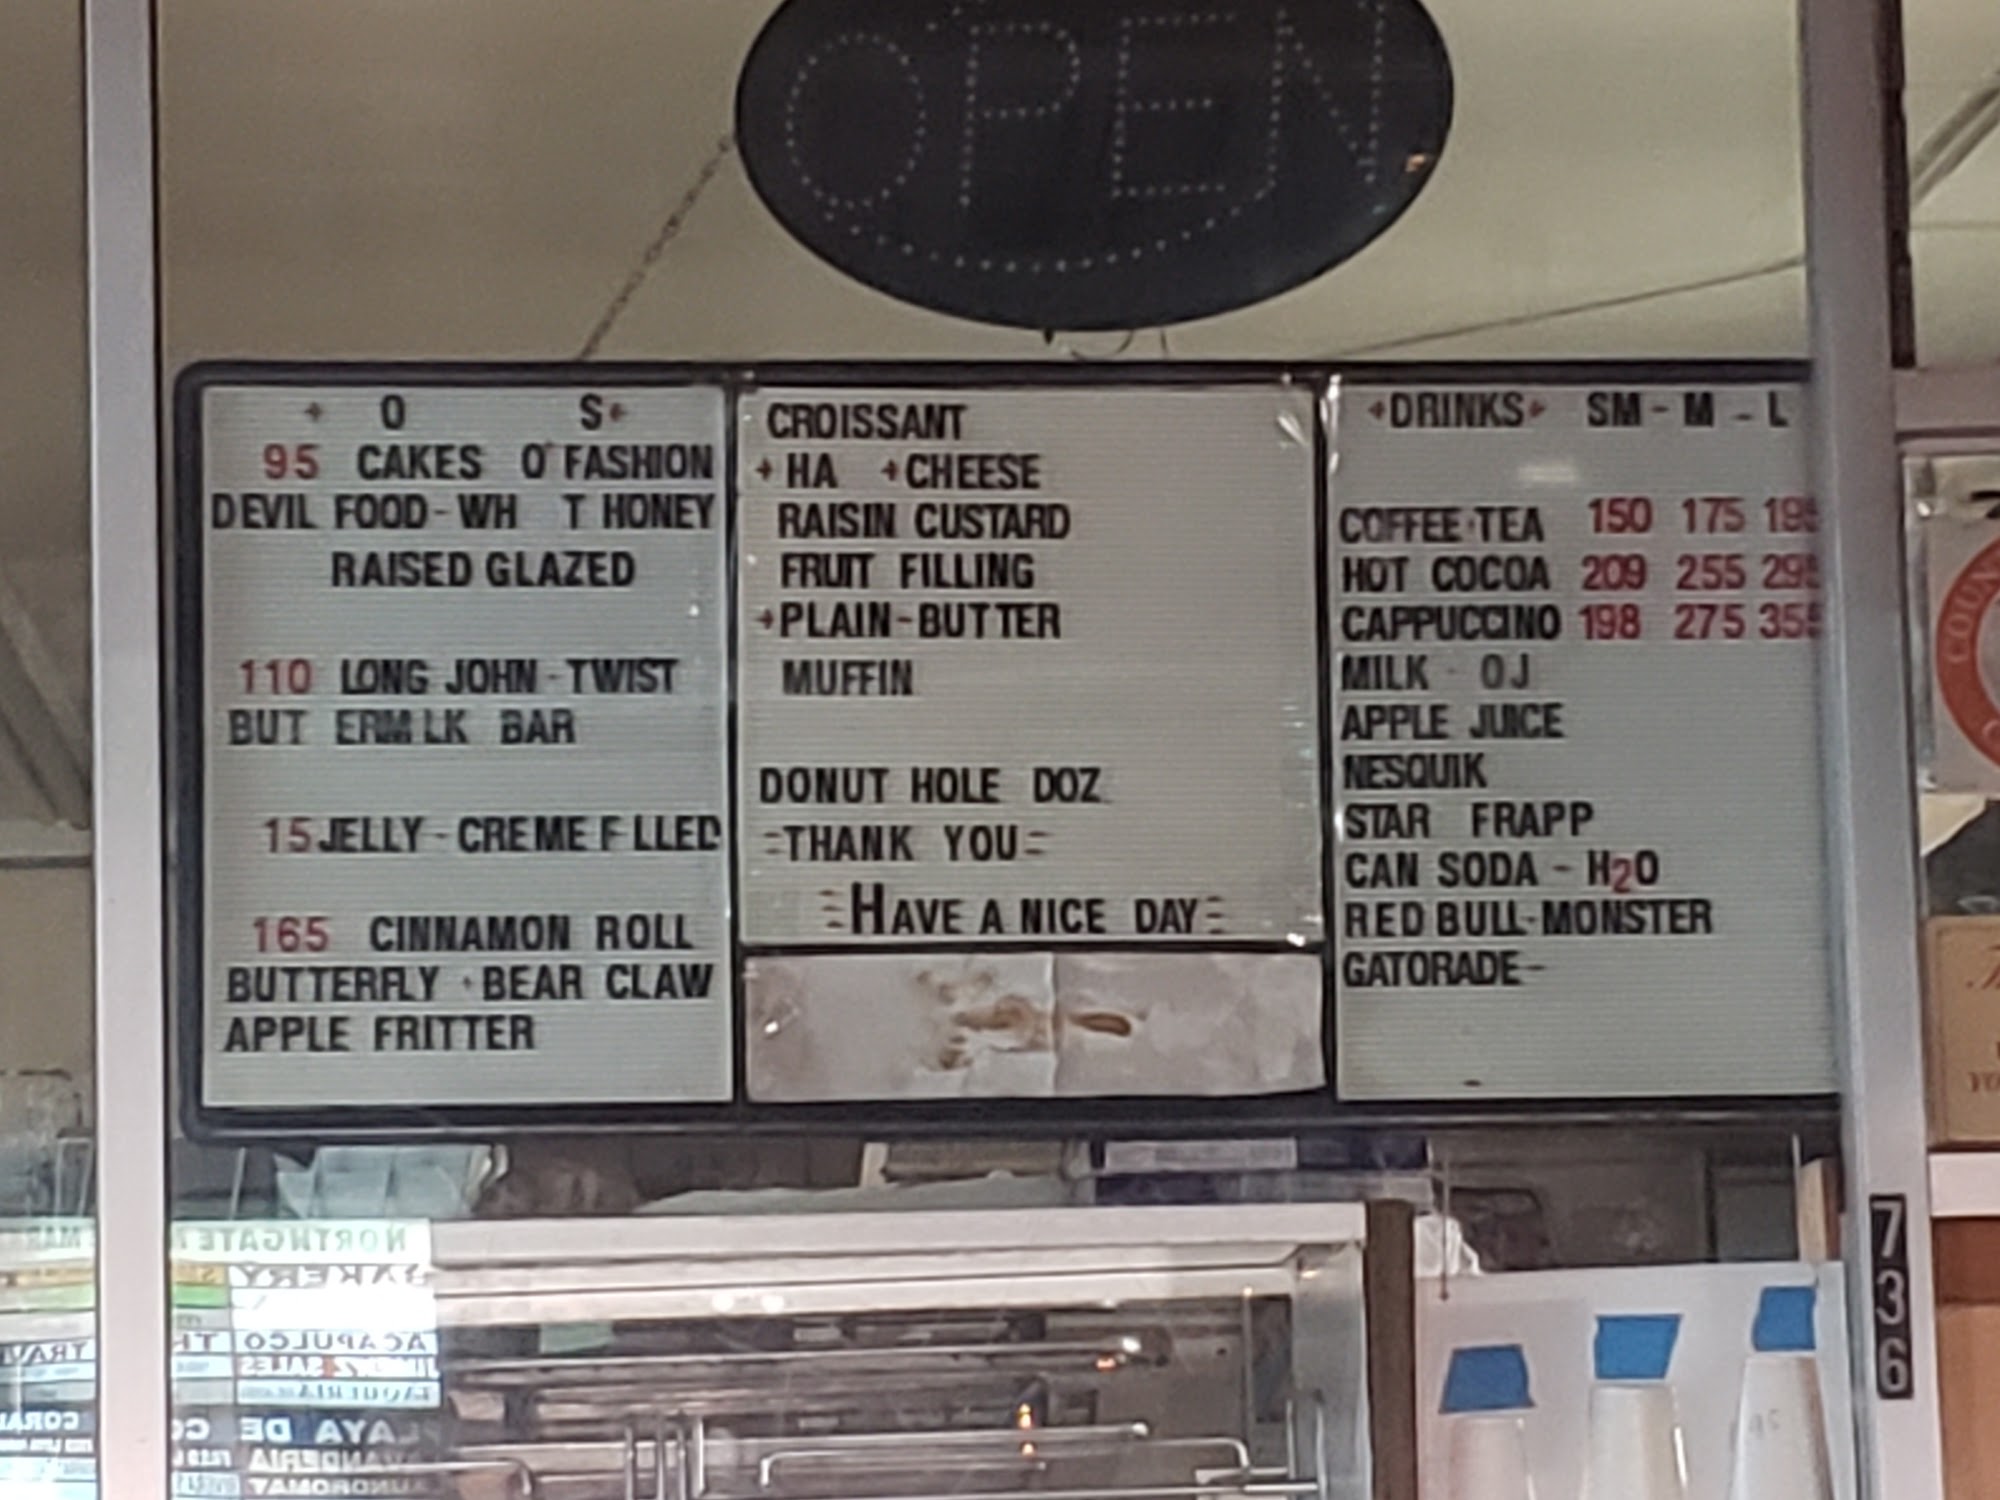 OPEN
O S
95 CAKES O' FASHION
DEVIL FOOD-WH T HONEY
RAISED GLAZED
110 LONG JOHN-TWIST
BUT ERM LK BAR
15 JELLY-CREME F LLED
165 CINNAMON ROLL
BUTTERFLY · BEAR CLAW
APPLE FRITTER
CROISSANT
HA CHEESE
RAISIN CUSTARD
FRUIT FILLING
PLAIN-BUTTER
MUFFIN
DONUT HOLE DOZ
THANK YOU
HAVE A NICE DAY
DRINKS SM - M - L
COFFEE·TEA 150 175 195
HOT COCOA 209 255 295
CAPPUCCINO 198 275 355
MILK - OJ
APPLE JUICE
NESQUIK
STAR FRAPP
CAN SODA - H2O
RED BULL-MONSTER
GATORADE-
736
NORTHGATE
BAKERY
ACAPULCO
PLAYA DE